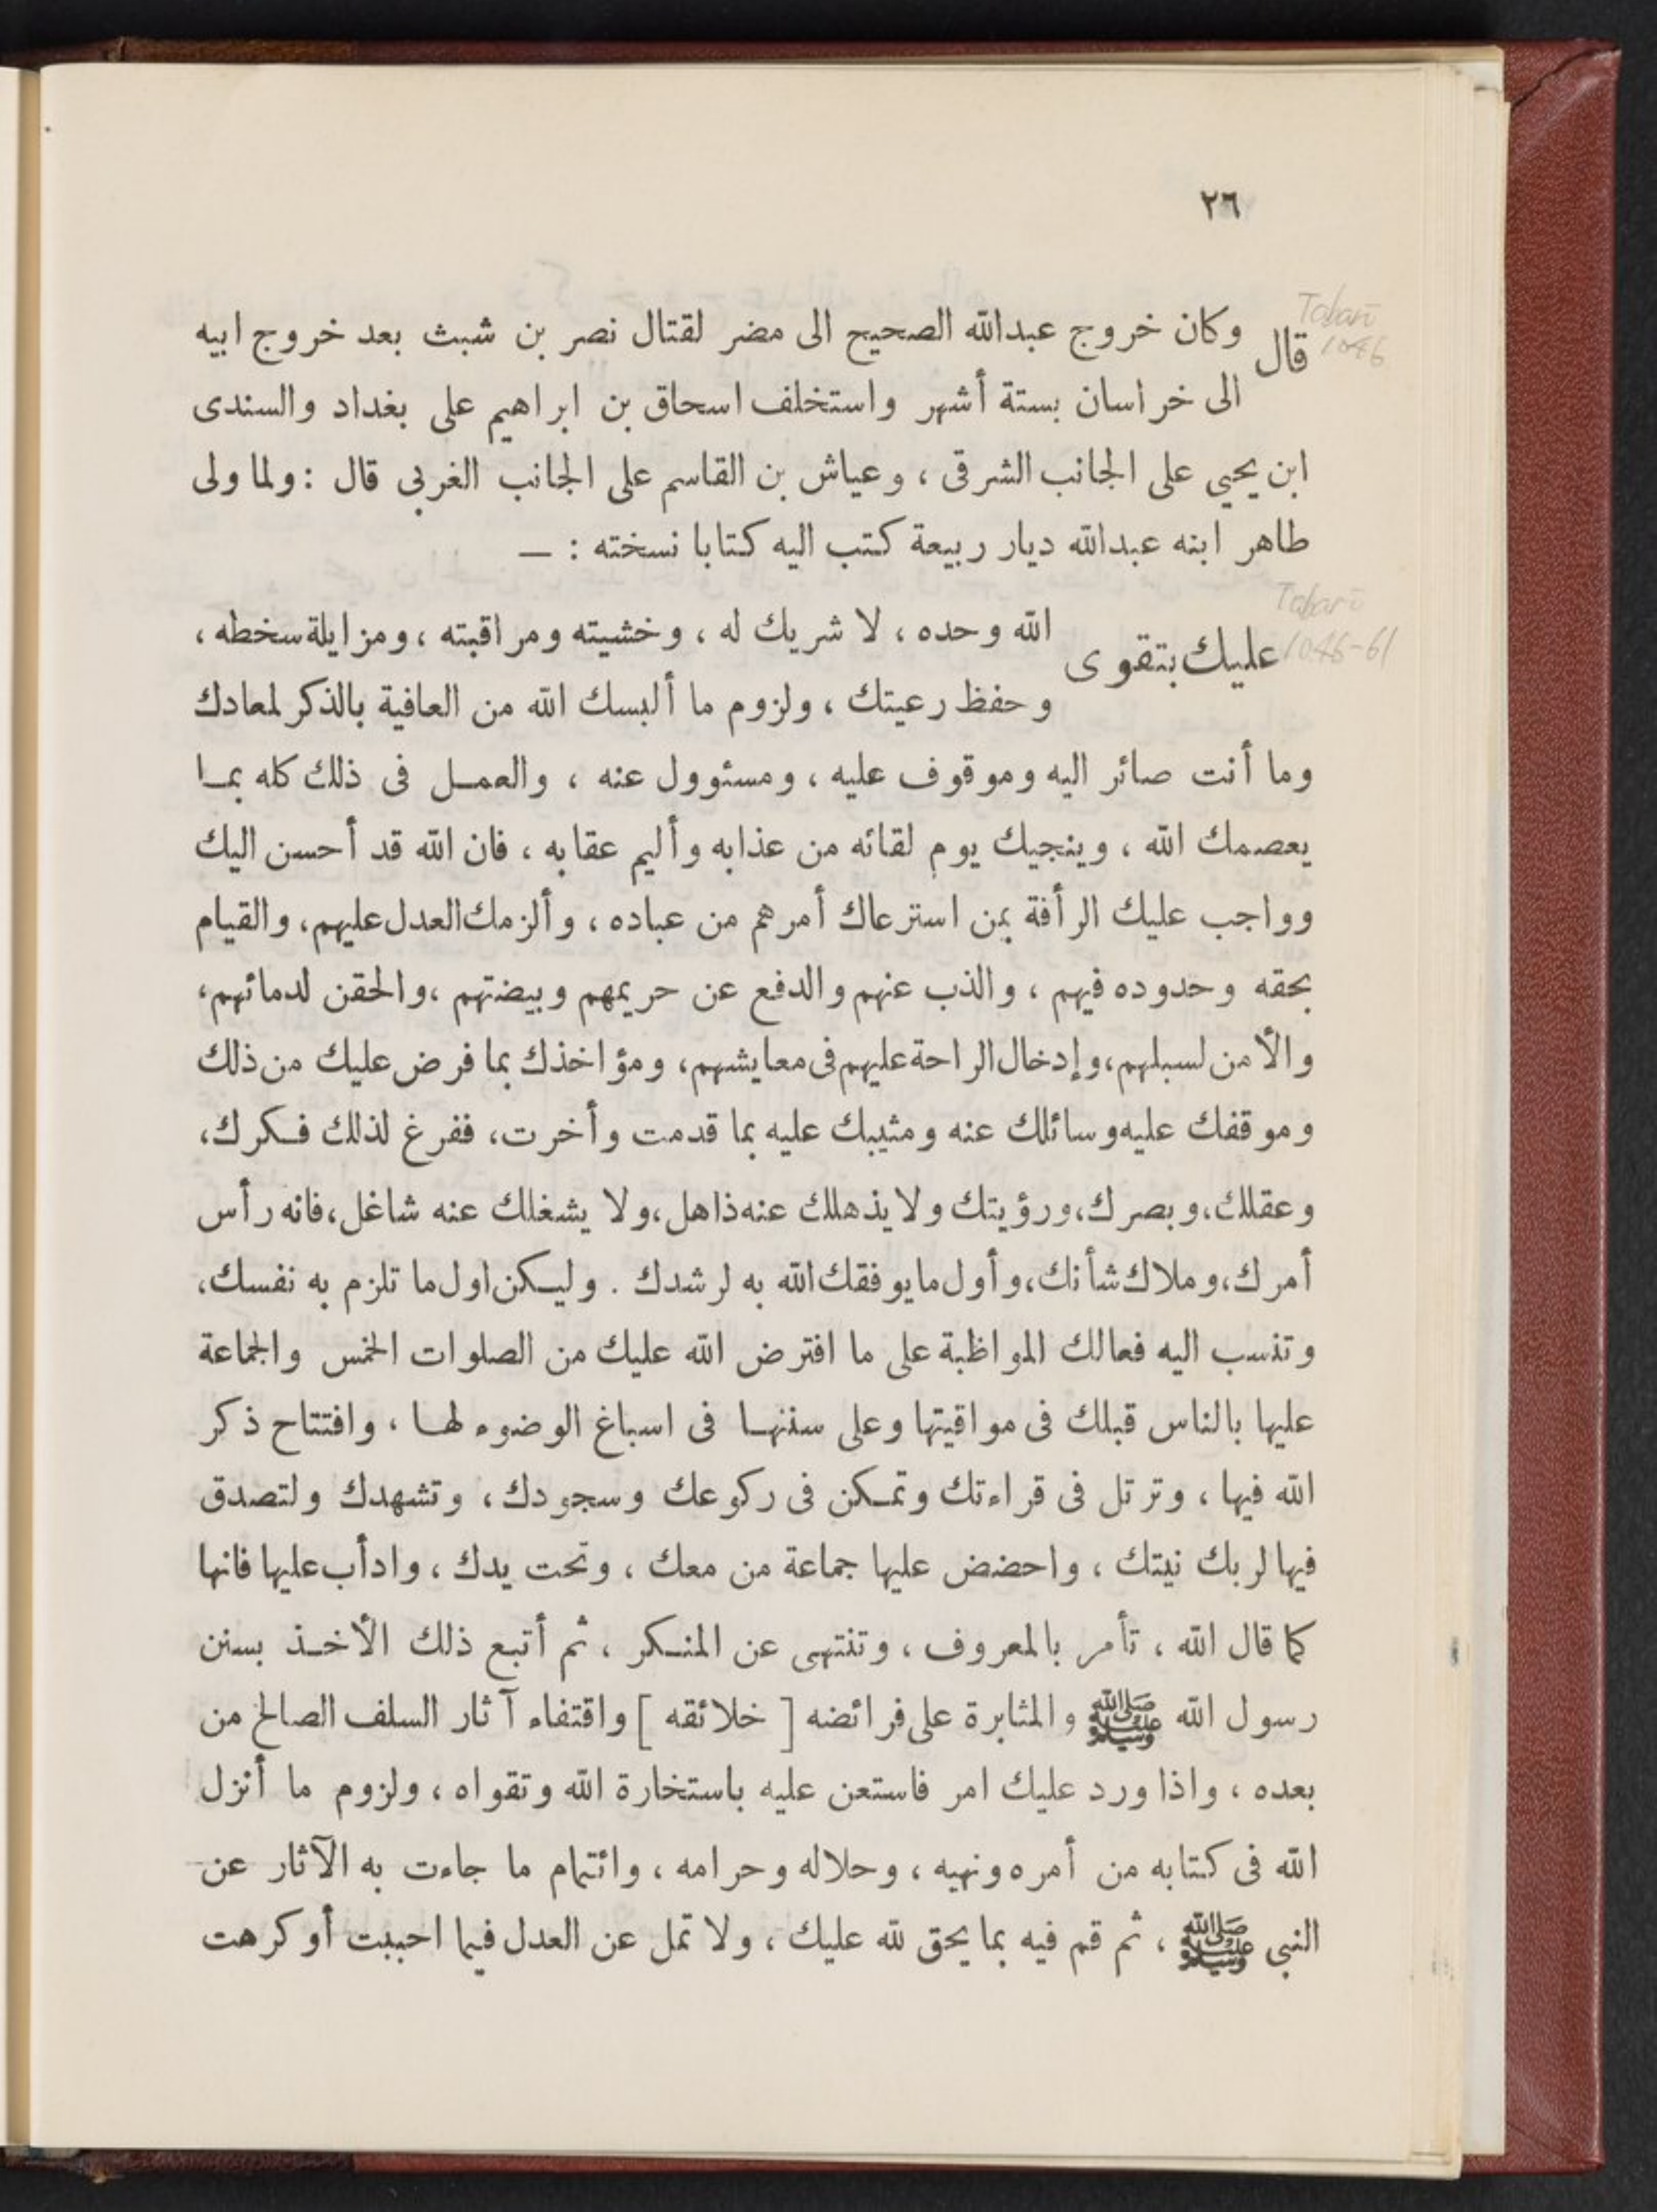 ٢٦
Tabarī
1046
قال وكان خروج عبدالله الصحيح الى مضر لقتال نصر بن شبث بعد خروج ابيه
الى خراسان بستة أشهر واستخلف اسحاق بن ابراهيم على بغداد والسندى
ابن يحيي على الجانب الشرقى ، وعياش بن القاسم على الجانب الغربى قال : ولما ولى
طاهر ابنه عبدالله ديار ربيعة كتب اليه كتابا نسخته : —
Tabarī
1046-61
عليك بتقوى الله وحده ، لا شريك له ، وخشيته ومراقبته ، ومزايلة سخطه ،
وحفظ رعيتك ، ولزوم ما ألبسك الله من العافية بالذكر لمعادك
وما أنت صائر اليه وموقوف عليه ، ومسئوول عنه ، والعمـل فى ذلك كله بمـا
يعصمك الله ، وينجيك يوم لقائه من عذابه وأليم عقابه ، فان الله قد أحسن اليك
وواجب عليك الرأفة بمن استرعاك أمرهم من عباده ، وألزمك العدل عليهم، والقيام
بحقه وحدوده فيهم ، والذب عنهم والدفع عن حريمهم وبيضتهم ،والحقن لدمائهم،
والأمن لسبلهم،وإدخال الراحة عليهم فى معايشهم، ومؤاخذك بما فرض عليك من ذلك
وموقفك عليه وسائلك عنه ومثيبك عليه بما قدمت وأخرت، ففرغ لذلك فـكرك،
وعقلك،وبصرك،ورؤيتك ولا يذهلك عنه ذاهل،ولا يشغلك عنه شاغل،فانه رأس
أمرك،وملاك شأنك،وأول ما يوفقك الله به لرشدك . وليـكن اول ما تلزم به نفسك،
وتنسب اليه فعالك المواظبة على ما افترض الله عليك من الصلوات الخمس والجماعة
عليها بالناس قبلك فى مواقيتها وعلى سننهـا فى اسباغ الوضوء لهـا ، وافتتاح ذكر
الله فيها ، وترتل فى قراءتك وتمـكن فى ركوعك وسجودك ، وتشهدك ولتصدق
فيها لربك نيتك ، واحضض عليها جماعة من معك ، وتحت يدك ، وادأب عليها فانها
كما قال الله ، تأمر بالمعروف ، وتنتهى عن المنـكر ، ثم أتبع ذلك الأخـذ بسنن
رسول الله ﷺ والمثابرة على فرائضه [ خلائقه ] واقتفاء آثار السلف الصالح من
بعده ، واذا ورد عليك امر فاستعن عليه باستخارة الله وتقواه ، ولزوم ما أنزل
الله فى كتابه من أمره ونهيه ، وحلاله وحرامه ، وائتمام ما جاءت به الآثار عن
النبى ﷺ ، ثم قم فيه بما يحق لله عليك ، ولا تمل عن العدل فيما احببت أو كرهت